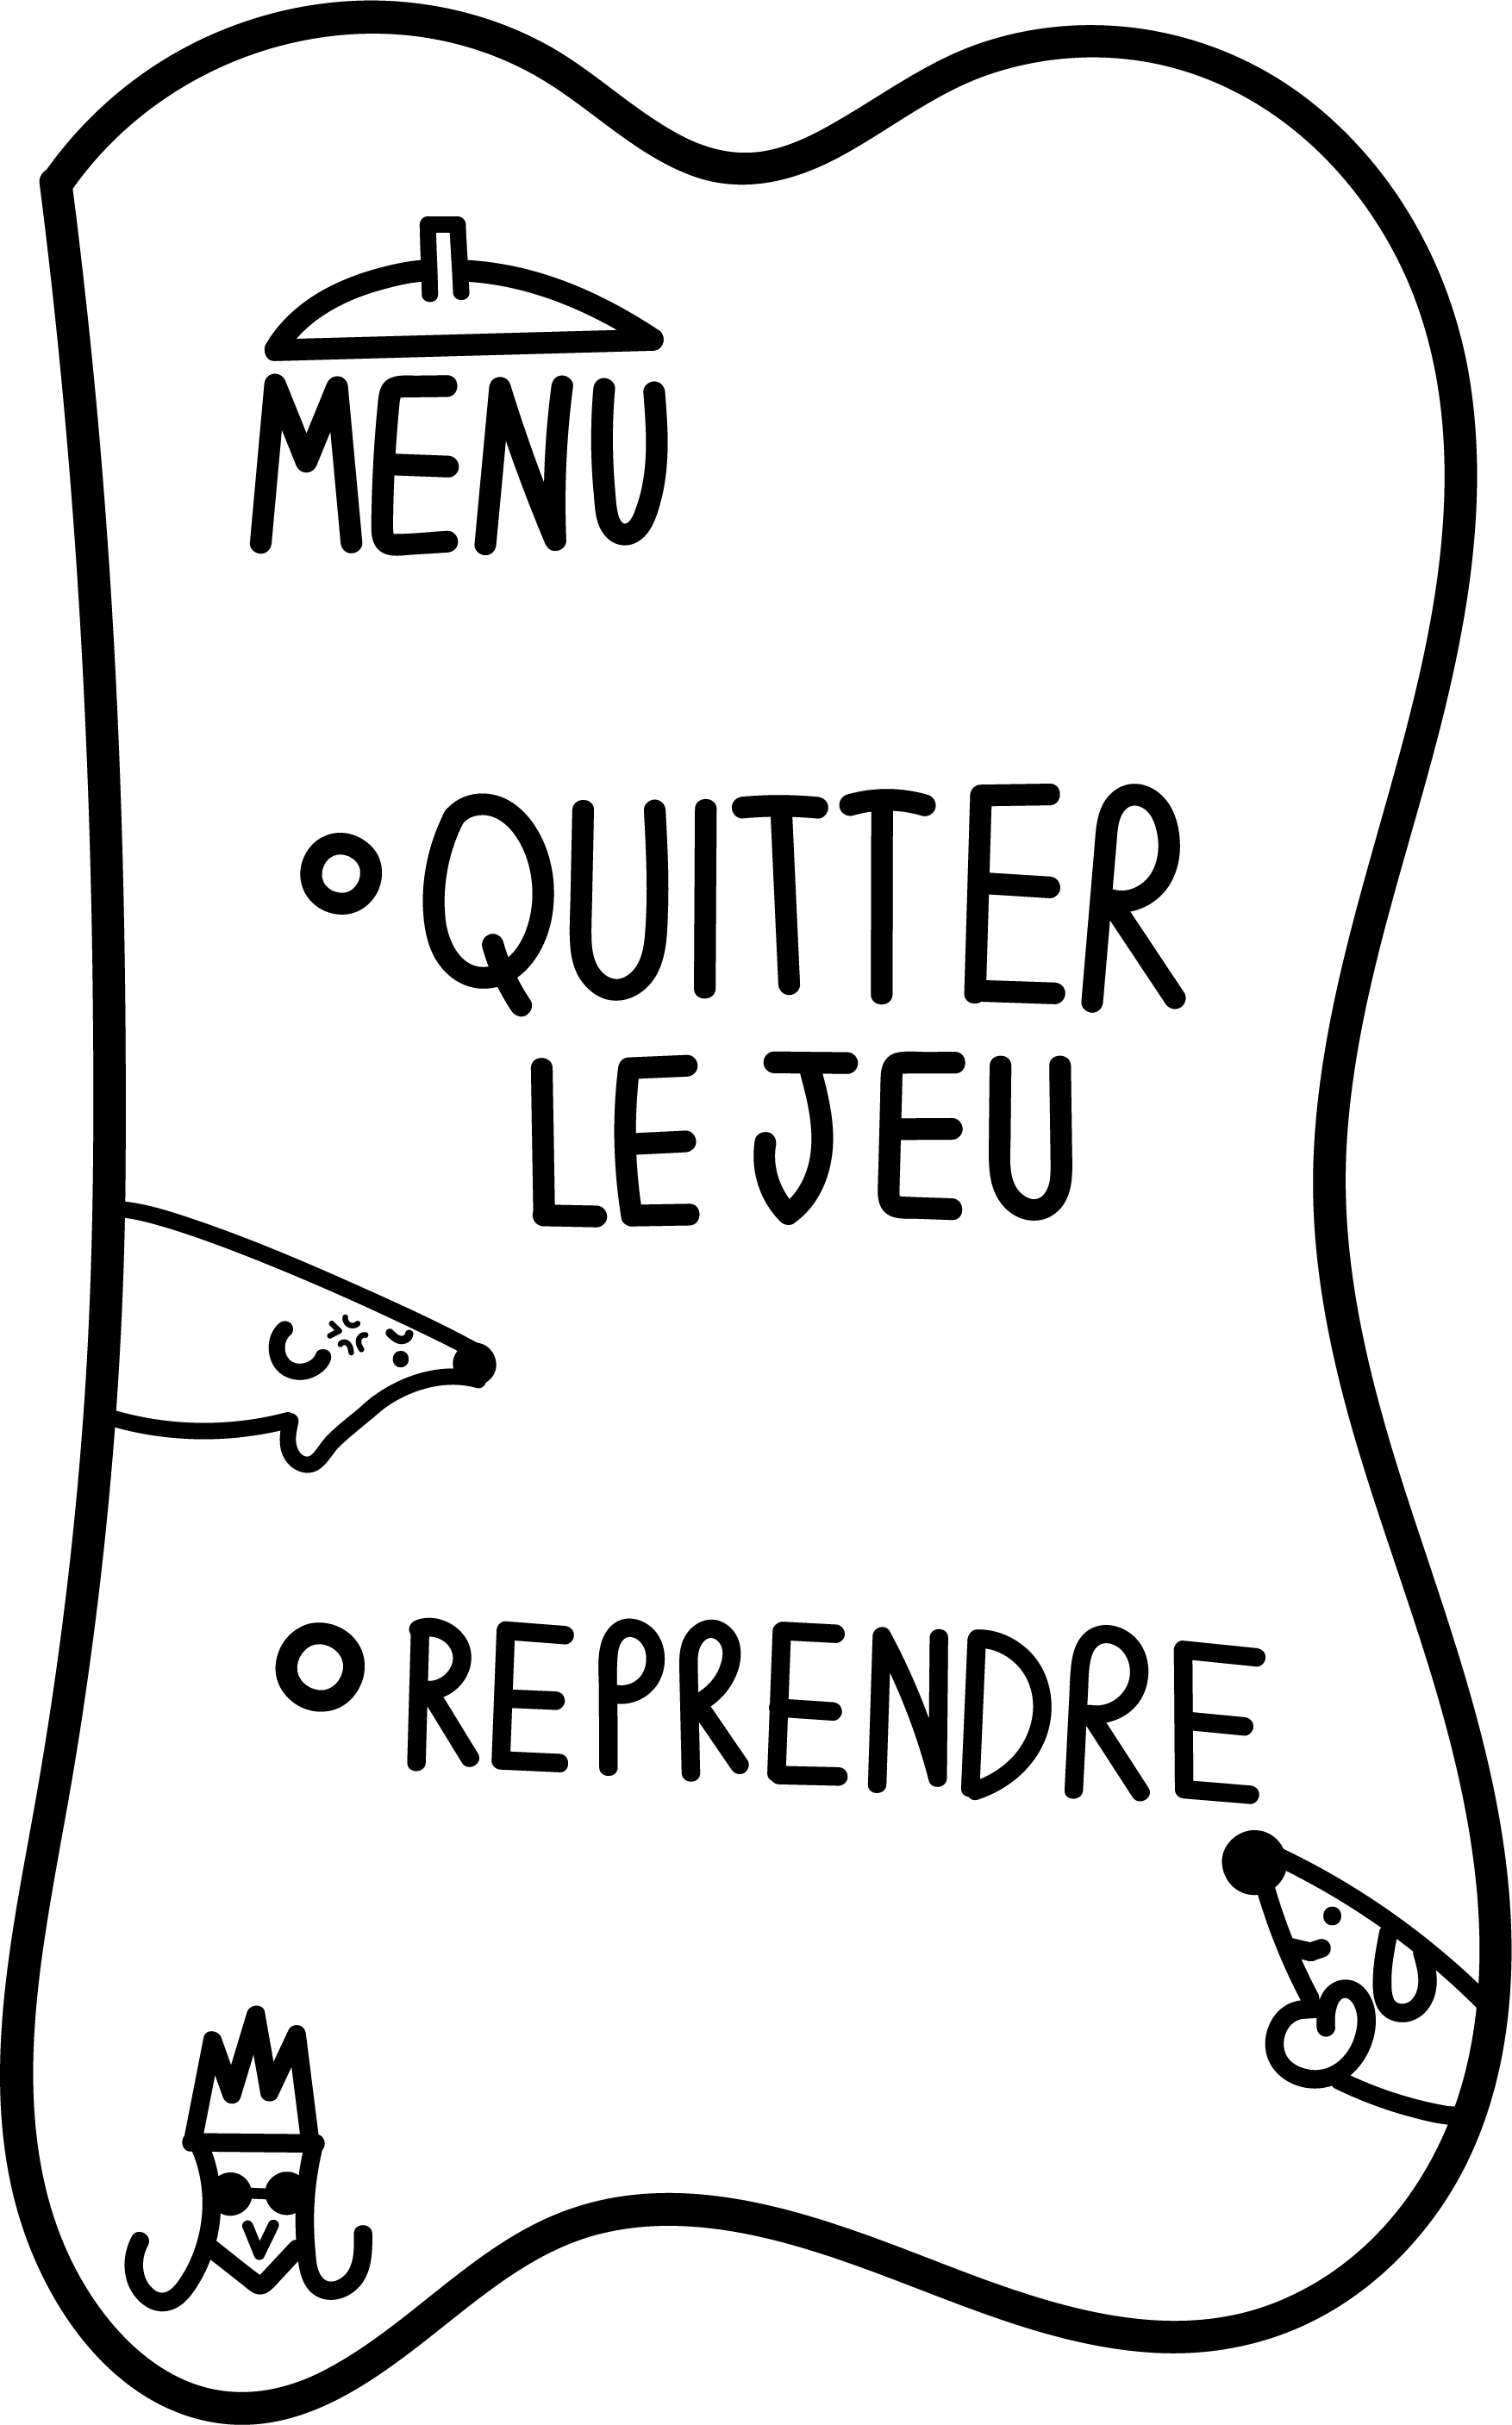 MENU
QUITTER
LE JEU
REPRENDRE